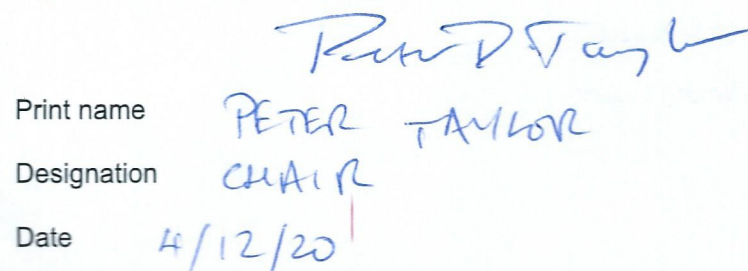 Peter D Taylor
Print name PETER TAYLOR
Designation CHAIR
Date 4/12/20